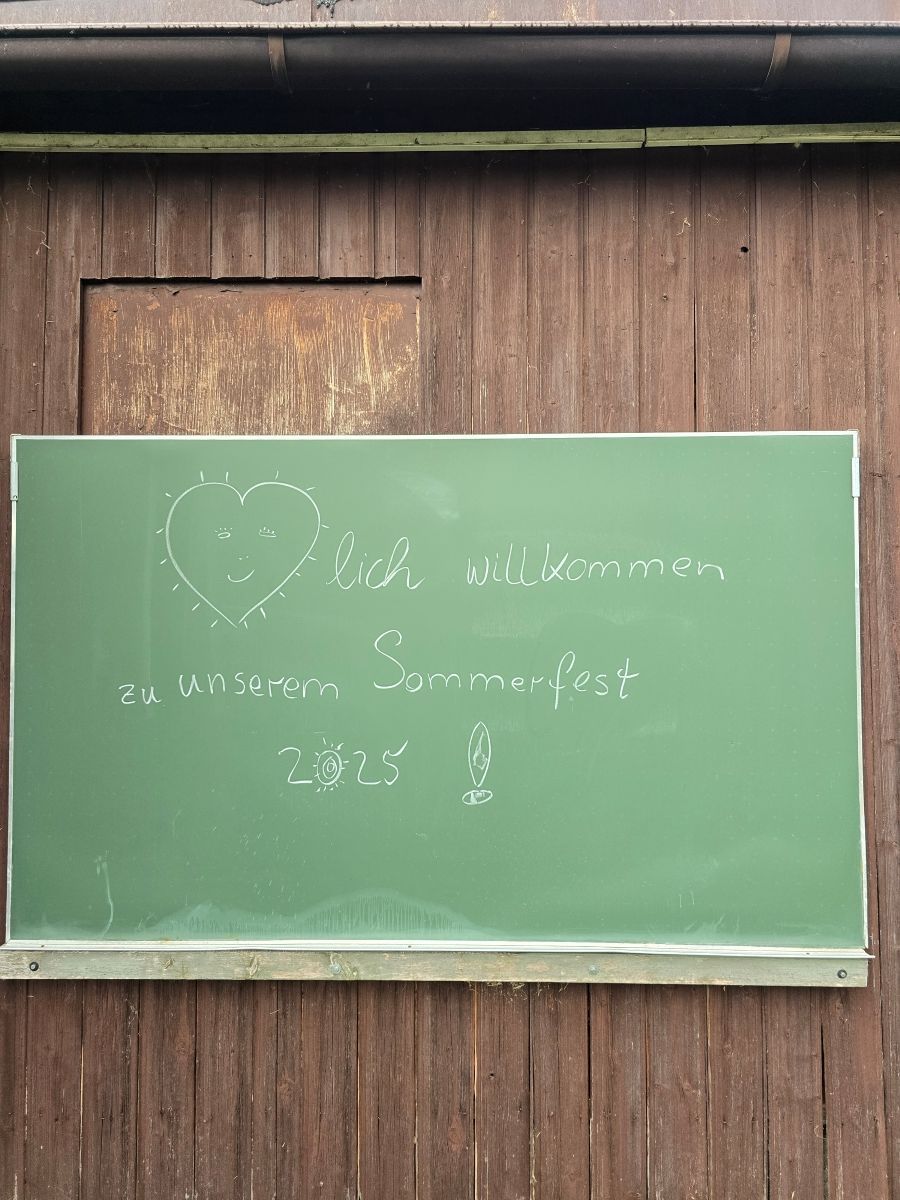 lich willkommen
zu unserem Sommerfest
2025 !